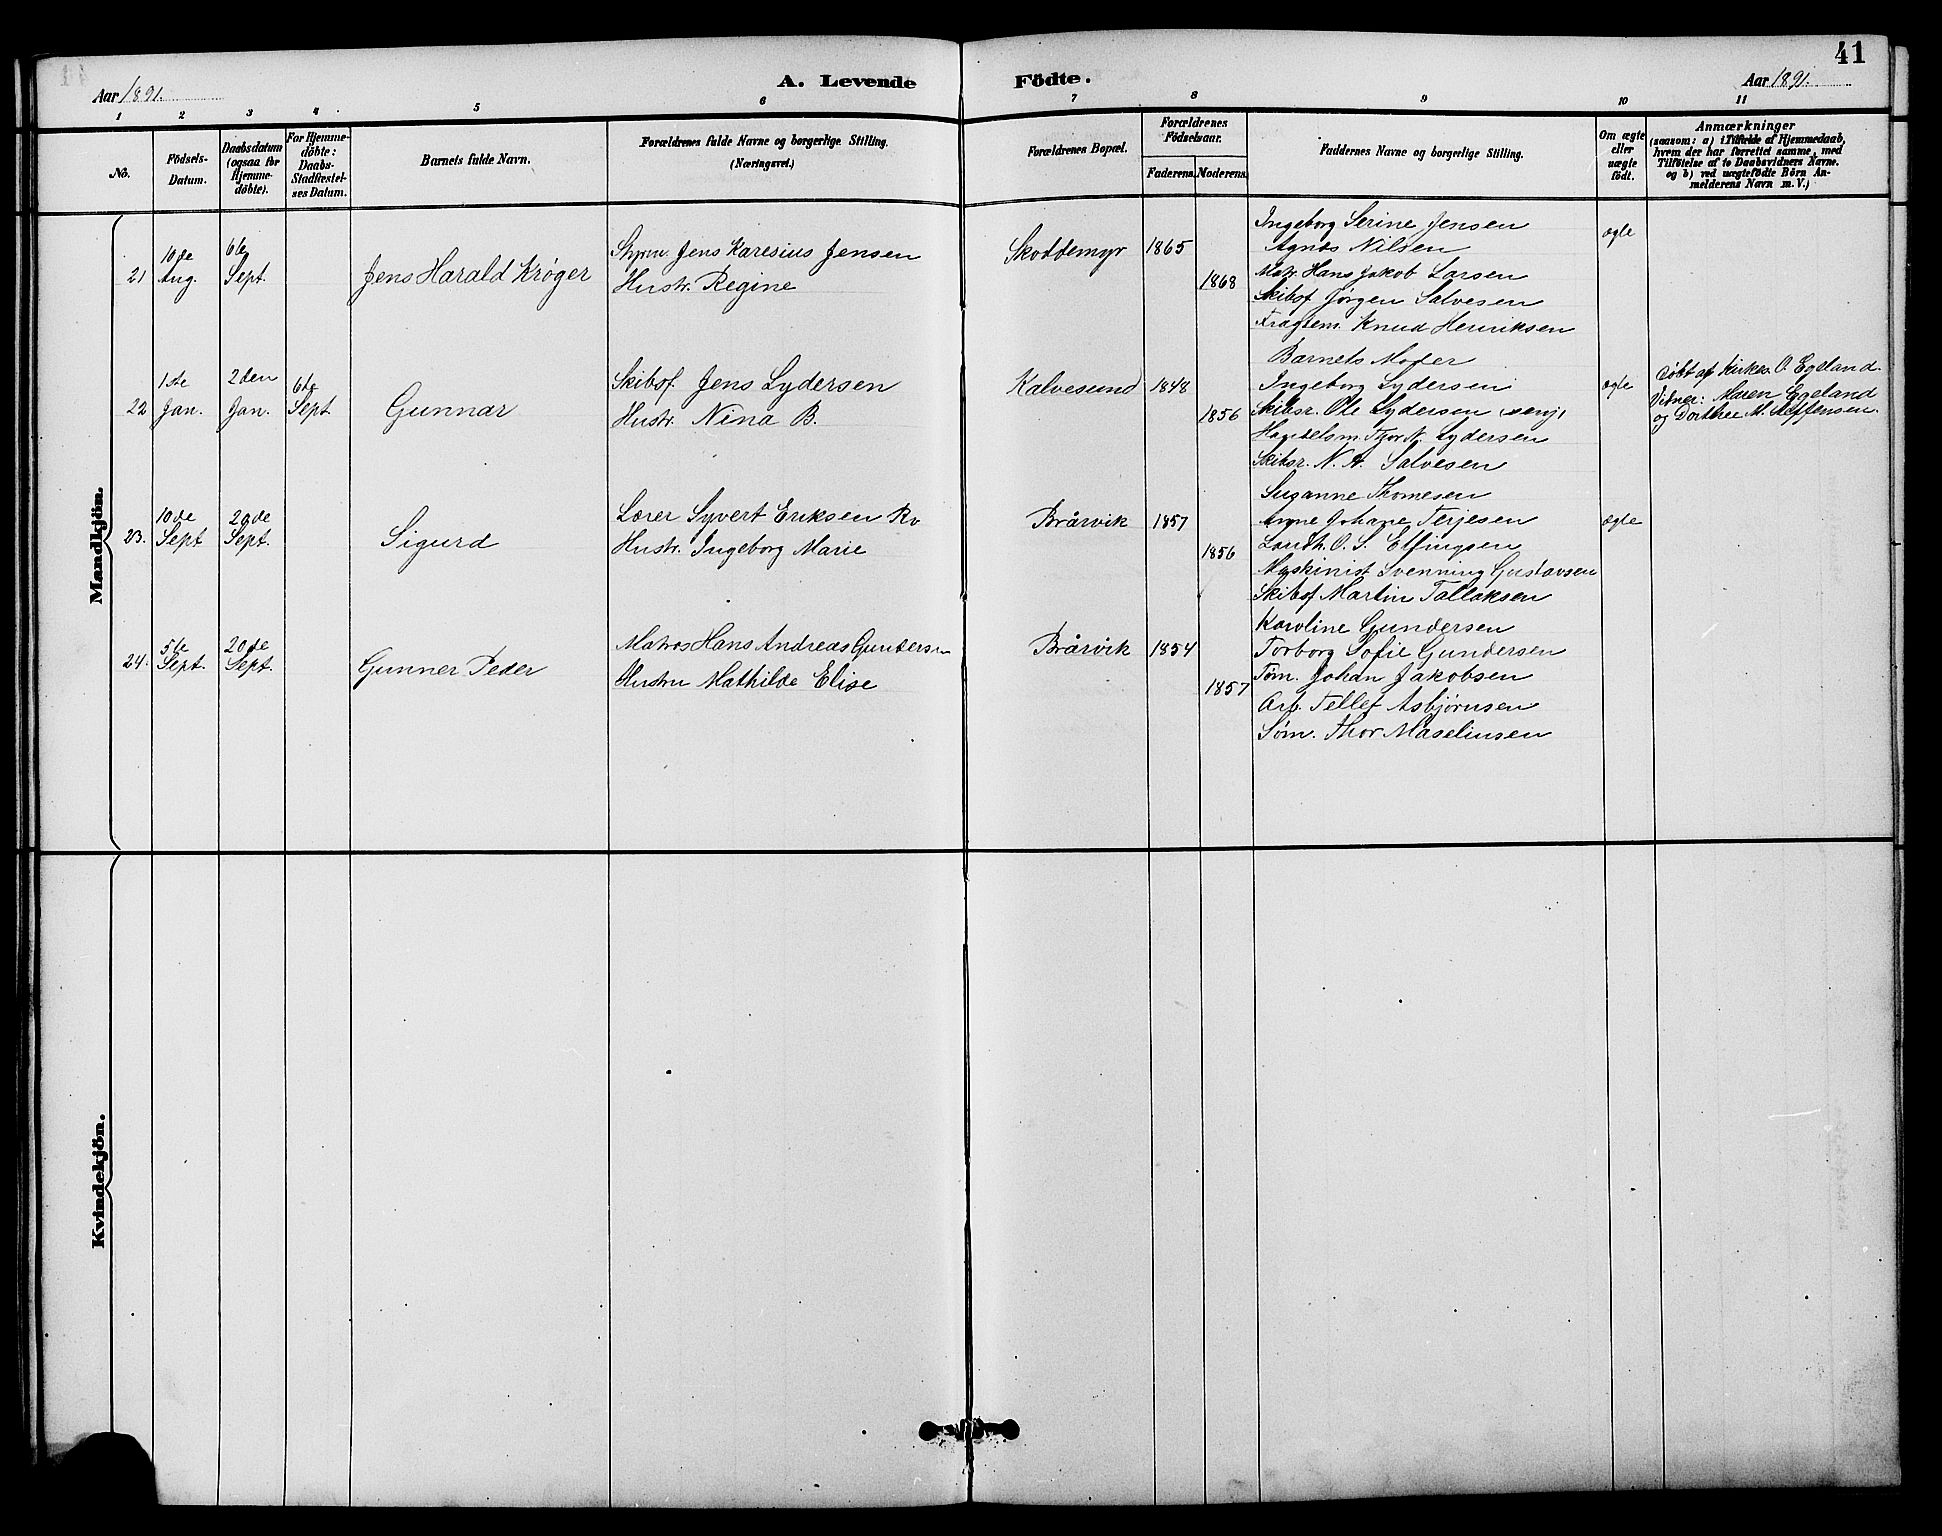 41
Aar 1891.
A. Levende Födte.
Aar 1891.
1 2 3 4 5 6 7 8 9 10 11
No.
Födsels-Datum.
Daabsdatum (ogsaa for Hjemmedöbte).
For Hjemmedöbte: Daabs-Stadfæstelses Datum.
Barnets fulde Navn.
Forældrenes fulde Navne og borgerlige Stilling. (Næringsvei.)
Forældrenes Bopæl.
Forældrenes Födselsaar.
Faderens. Moderens.
Faddernes Navne og borgerlige Stilling.
Om ægte eller uægte födt.
Anmærkninger
(saasom: a) i Tilfælde af Hjemmedaab,
hvem der har forrettet samme, med
Tilföielse af to Daabsvidners Navne.
og b) ved uægtefödte Börn An-
melderens Navn m.V.)
Mandkjön.
21
10de Aug.
6te Sept.
Jens Harald Krøger
Styrm. Jens Karesius Jensen
Hustr. Regine
Skoddemyr
1865
1868
Ingeborg Serine Jensen
Agnes Nilsen
Matr. Hans Jakob Larsen
Skibsf. Jörgen Salvesen
Fragtem. Knud Henriksen
ægte
22
1ste Jan.
2den Jan.
6te Sept
Gunnar
Skibsf. Jens Lydersen
Hustr. Nina B.
Kalvesund
1848
1856
Barnets Moder
Ingeborg Lydersen
Skibsr. Ole Lydersen senj,
Handelsm. Thor N. Lydersen
Skibsr. N. A. Salvesen
ægte
döbt af Kirkes. O. Egeland.
Vidner: Maren Egeland
og Dorthee M. Steffensen.
23.
10de Sept
20de Sept.
Sigurd
Lærer Syvert Eriksen Ro
Hustr. Ingeborg Marie
Brårvik
1857
1856
Suzanne Thomesen
Anne Johane Terjesen
Landh. O. S. Ellingsen
Maskinist Svenning Gustavsen
Skibsf Martin Tallaksen
ægte
24.
5te Sept.
20de Sept.
Gunner Peder
Matros Hans Andreas Gundersen
Hustru Mathilde Elise
Brårvik
1854
1857
Karoline Gundersen
Torborg Sofie Gundersen
Töm. Johan Jakobsen
Arb. Tellef Asbjörnsen
Söm. Thor Maselinsen
Kvindekjön.